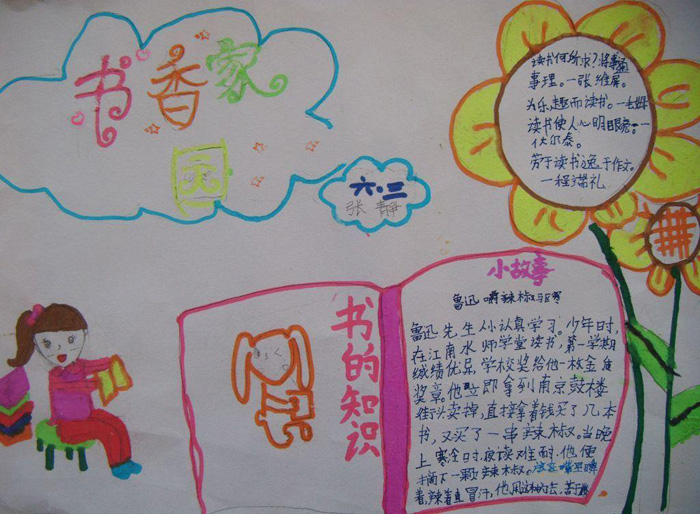 书香家
园
六.三
张静
读书何所求？将事
事理。一张维屏。
为乐趣而读书。一毛姆
读书使人心明眼亮。一
伏尔泰。
劳于读书逸于作文。
一程端礼
书的知识
小故事
鲁迅嚼辣椒
鲁迅先生从小认真学习。少年时，
在江南水师学堂读书，第一学期
成绩优异，学校奖给他一枚金质
奖章。他立即拿到南京鼓楼
街头卖掉，直接拿着钱买了几本
书，又买了一串辣椒。当晚
上寒冷时，夜读难耐，他便
摘下一颗辣椒。放在嘴里嚼
着，辣着直冒汗，他用这种办法，苦于